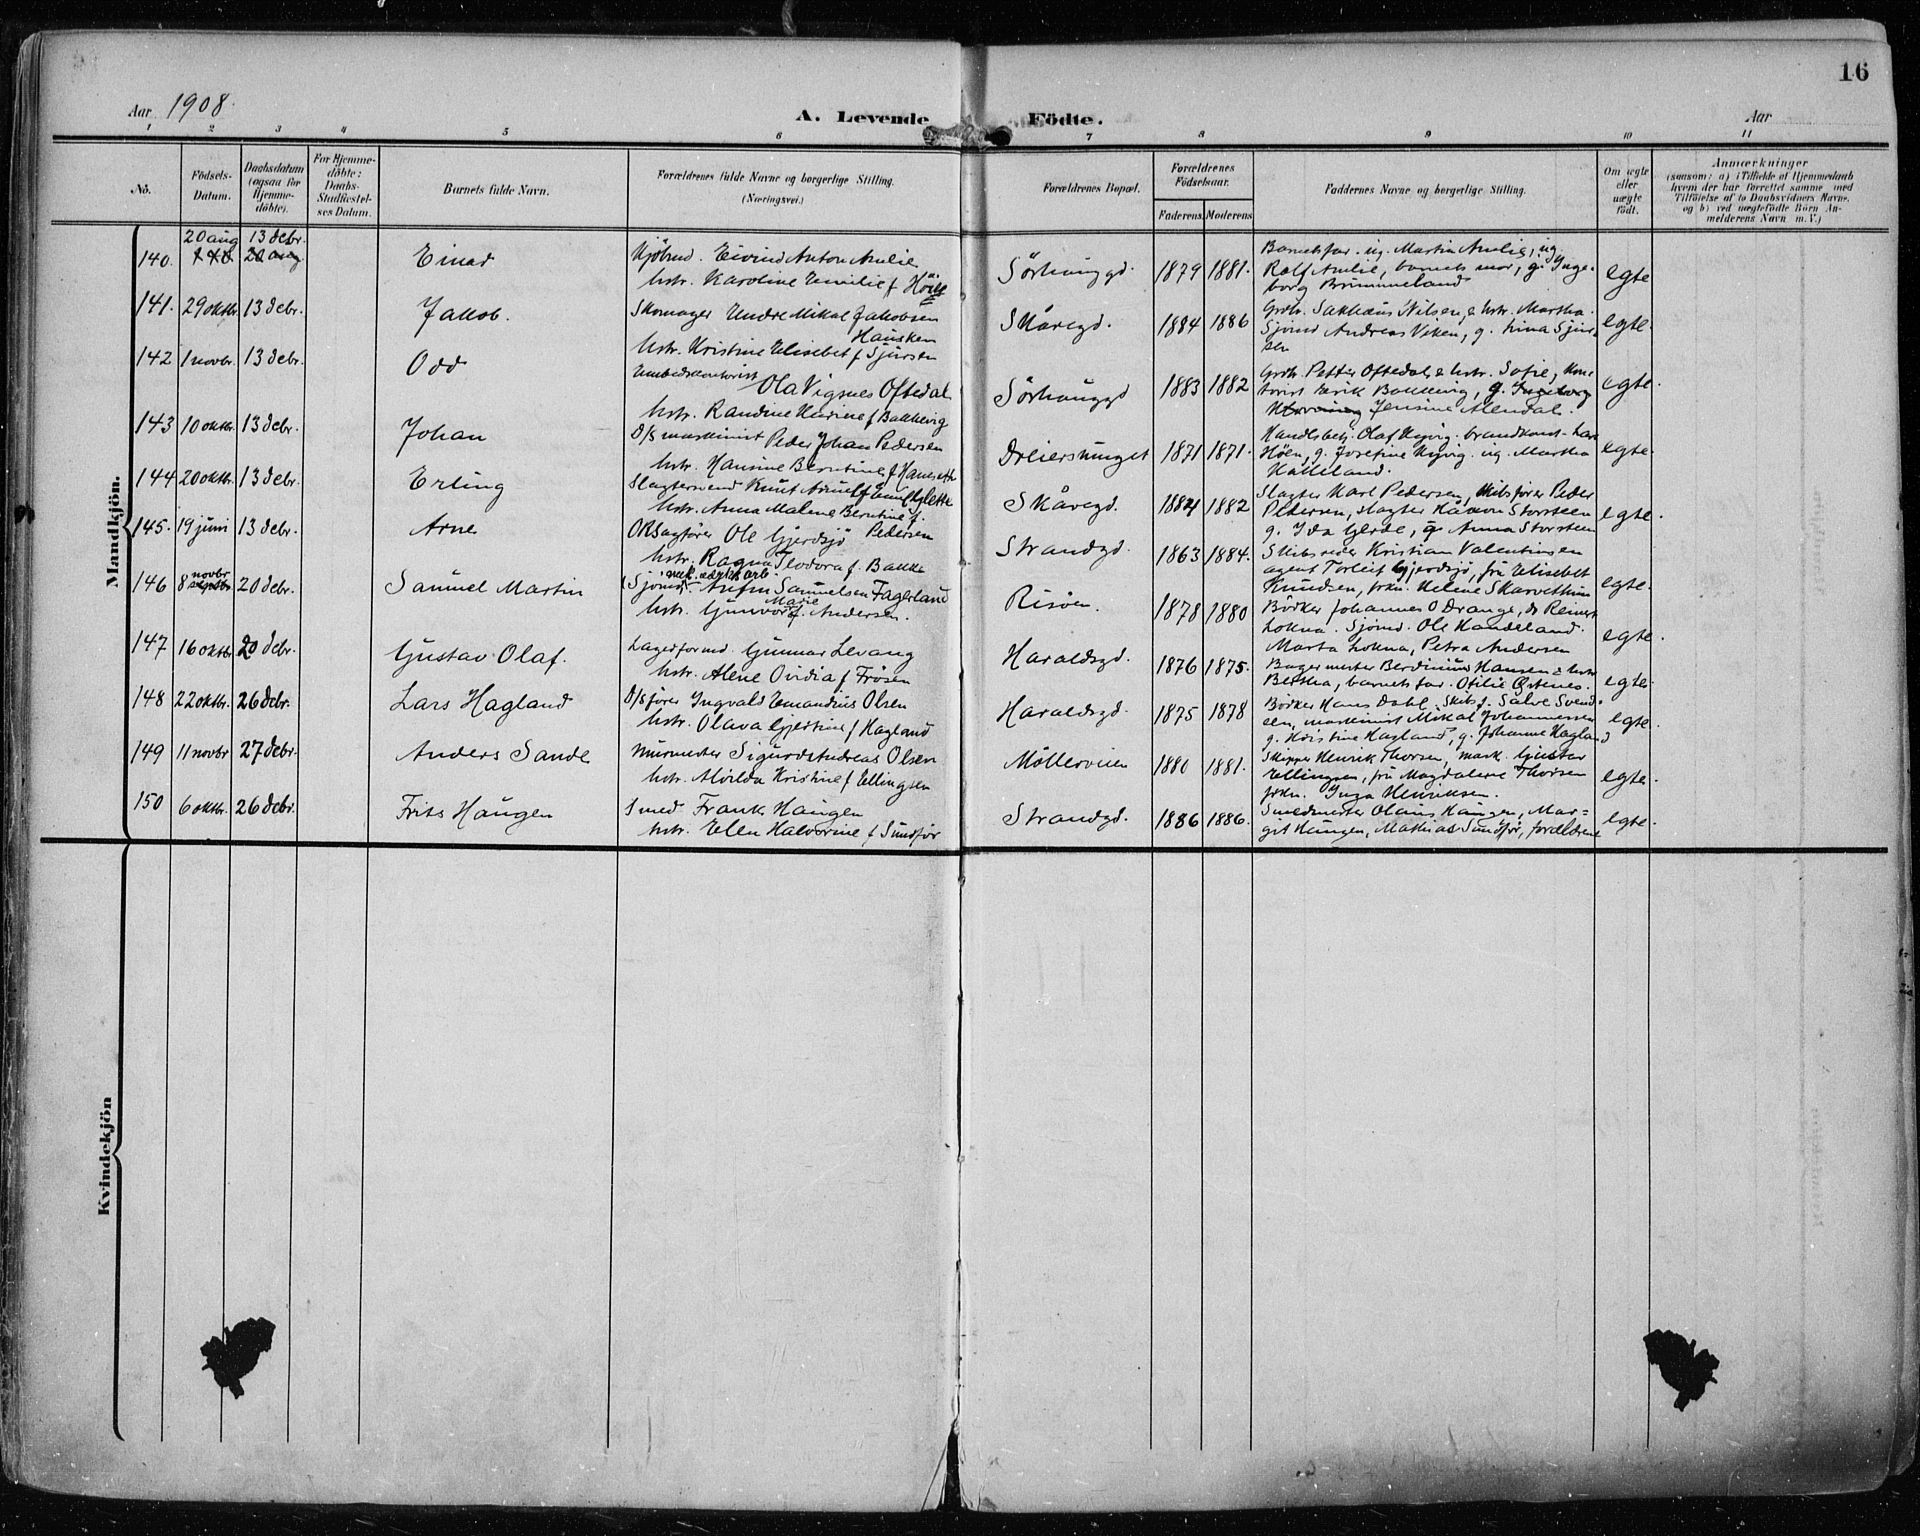 16
Aar 1908.
A. Levende Födte.
Aar
1 2 3 4 5 6 7 8 9 10 11
No.
Födsels-Datum.
Daabsdatum (ogsaa for Hjemme-döbte).
For Hjemme-döbte: Daabs-Stadfæstel-ses Datum.
Barnets fulde Navn.
Forældrenes fulde Navne og borgerlige Stilling. (Næringsvei.)
Forældrenes Bopæl.
Forældrenes Födselsaar.
Faderens. Moderens
Faddernes Navne og borgerlige Stilling.
Om ægte eller uægte födt.
Anmærkninger
(saasom: a) i Tilfælde af Hjemmedaab hvem der har forrettet samme med Tilföielse af to Daabsvidners Navne, og b) ved uægtefödte Börn An-melderens Navn m. V.)
Mandkjön.
140. 20 aug 13 debr. Einar
Kjöbmd. Eivind Anton Amlie
hstr. Karoline Emilie f
Sörhauggd. 1879 1881.
Barnets far. ug. Martin Amlie, ug.
Rolf Amlie, barnets mor, g. Inge-
borg Brummeland
egte
141. 29 oktbr. 13 debr. Jakob.
Skomager Andre Mikal Jakobsen
Hausken
hstr. Kristine Elisebet f Sjursen
Skåregd. 1884 1886
Grdbr. Sakkæus Nilsen, & hstr. Martha.
Sjömd Andreas Viken, g. Lina Sjur-
sen
egte.
142 1 novbr. 13 debr. Odd
Embedskontorist
Ola Vignes Oftedal
hstr. Randine Karine f Bakkevig
Sörhauggd 1883 1882
Grdbr. Petter Oftedal & hstr. Sofie, Kon-
torist Erik Bakkevig, g. Ingeborg
Jensine Alendal.
egte.
143 10 oktbr. 13 debr. Johan
D/S maskinist Peder Johan Pedersen
hstr. Hansine Berntine f
Dreiersmuget 1871 1871.
Handlsbetj. Olaf Kyvig. brandkonst. Lars
Höen, g. Josefine Kyvig. ug. Martha
Halleland.
egte.
144 20 oktbr. 13 debr. Erling
Slagtersvend Knut
hstr. Anna Malene Berntine f.
Pedersen
Skåregd. 1884 1882
Slagter Karl Pedersen, skibsförer Peder
Pedersen, slagter Håkon Storsteen
g. Ida Gjerde, g Anna Storsteen
egte.
145. 19 juni 13 debr. Arne
ORSagförer Ole Gjerdsjö
hstr. Ragna Teodora f. Bakke
Strandgd. 1863 1884.
Skibsreder Kristian Valentinsen
agent Torleif Gjerdsjö, fru Elisebet
Knudsen, frkn. Helene Skarvethun
egte.
146 8 novbr 20 debr. Samuel Martin
Sjömd. mek. værkst. arb.
Samuelsen Fagerland
hstr. Gunvor Marie f. Andersen.
Risöen. 1878 1880
Bödker Johannes O Drange, do Reinert
Lokna. Sjömd. Ole Handeland.
Marta Lokna, Petra Andersen
egte.
147 16 oktbr. 20 debr. Gustav Olaf.
Lagerformd. Gunnar Levang
hstr. Alene Ovidia f Frösen
Haraldsgd. 1876 1875.
Bagermester Berdinius Hansen & hstr
Bertha, barnets far. Otilie Östenes.
egte.
148 22 oktbr. 26 debr. Lars Hagland
D/S förer Ingvald Emandius Olsen
hstr. Olava Gjertine f Hagland
Haraldsgd. 1875 1878
Bödker Hans Dahl. Skibsf. Salve Svend-
sen, maskinist Mikal Johannessen
g. Kristine Hagland, g. Johanne Hagland
egte.
149 11 novbr 27 debr. Anders Sande
Murmester Sigurd Andreas Olsen
hstr. Alvilda Kristine f Ellingsen
Möllerveien 1880 1881.
Skipper Henrik Thorsen, mask. Gustav
Ellingsen, fru Magdalene Thorsen
frkn. Inga Henriksen.
egte.
150 6 oktbr. 26 debr. Frits Haugen
Smed Frank Haugen
hstr. Elen Halvorine f Sundför
Strandgd. 1886 1886.
Smedmester Olaus Haugen, Mar-
git Haugen, Mathias Sundför, forældrene
egte.
Kvindekjön